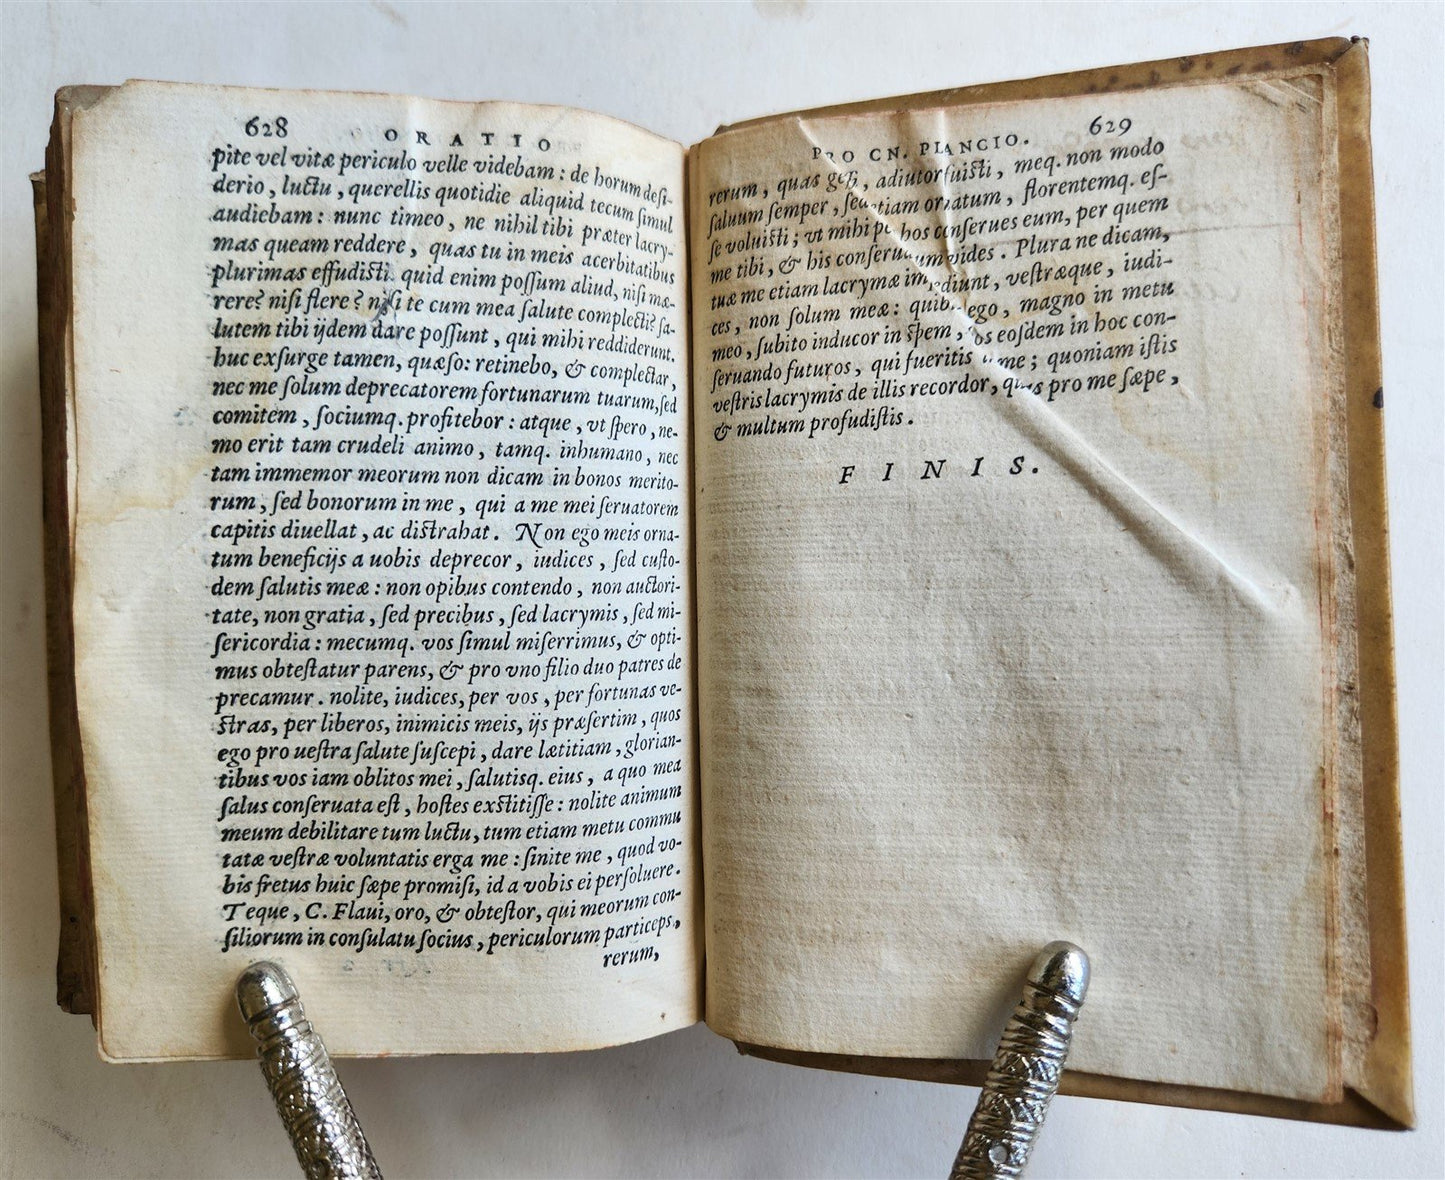 628 ORATIO
pite vel vitæ periculo velle videbam: de horum desi-
derio, luctu, querellis quotidie aliquid tecum simul
audiebam: nunc timeo, ne nihil tibi præter lacry-
mas queam reddere, quas tu in meis acerbitatibus
plurimas effudisti. quid enim possum aliud, nisi mæ-
rere? nisi flere? nisi te cum mea salute complecti? sa-
lutem tibi ijdem dare possunt, qui mihi reddiderunt.
huc exsurge tamen, quæso: retinebo, & complectar,
nec me solum deprecatorem fortunarum tuarum, sed
comitem, sociumq. profitebor: atque, vt spero, ne-
mo erit tam crudeli animo, tamq. inhumano, nec
tam immemor meorum non dicam in bonos merito-
rum, sed bonorum in me, qui a me mei seruatorem
capitis diuellat, ac distrahat. Non ego meis orna-
tum beneficijs a uobis deprecor, iudices, sed custo-
dem salutis meæ: non opibus contendo, non auctori-
tate, non gratia, sed precibus, sed lacrymis, sed mi-
sericordia: mecumq. vos simul miserrimus, & opti-
mus obtestatur parens, & pro vno filio duo patres de
precamur. nolite, iudices, per vos, per fortunas ve-
stras, per liberos, inimicis meis, ijs præsertim, quos
ego pro uestra salute suscepi, dare lætitiam, glorian-
tibus vos iam oblitos mei, salutisq. eius, a quo mea
salus conseruata est, hostes exstitisse: nolite animum
meum debilitare tum luctu, tum etiam metu commu
tatæ vestræ voluntatis erga me: sinite me, quod vo-
bis fretus huic sæpe promisi, id a vobis ei persoluere.
Teque, C. Flaui, oro, & obtestor, qui meorum con-
siliorum in consulatu socius, periculorum particeps,
rerum,
PRO CN. PLANCIO. 629
rerum, quas gessi, adiutor fuisti, meq. non modo
saluum semper, sed etiam ornatum, florentemq. es-
se voluisti; vt mihi per hos conserues eum, per quem
me tibi, & his conseruatum vides. Plura ne dicam,
tuæ me etiam lacrymæ impediunt, vestræque, iudi-
ces, non solum meæ: quibus ego, magno in metu
meo, subito inducor in spem, vos eosdem in hoc con-
seruando futuros, qui fueritis in me; quoniam istis
vestris lacrymis de illis recordor, quas pro me sæpe,
& multum profudistis.
FINIS.